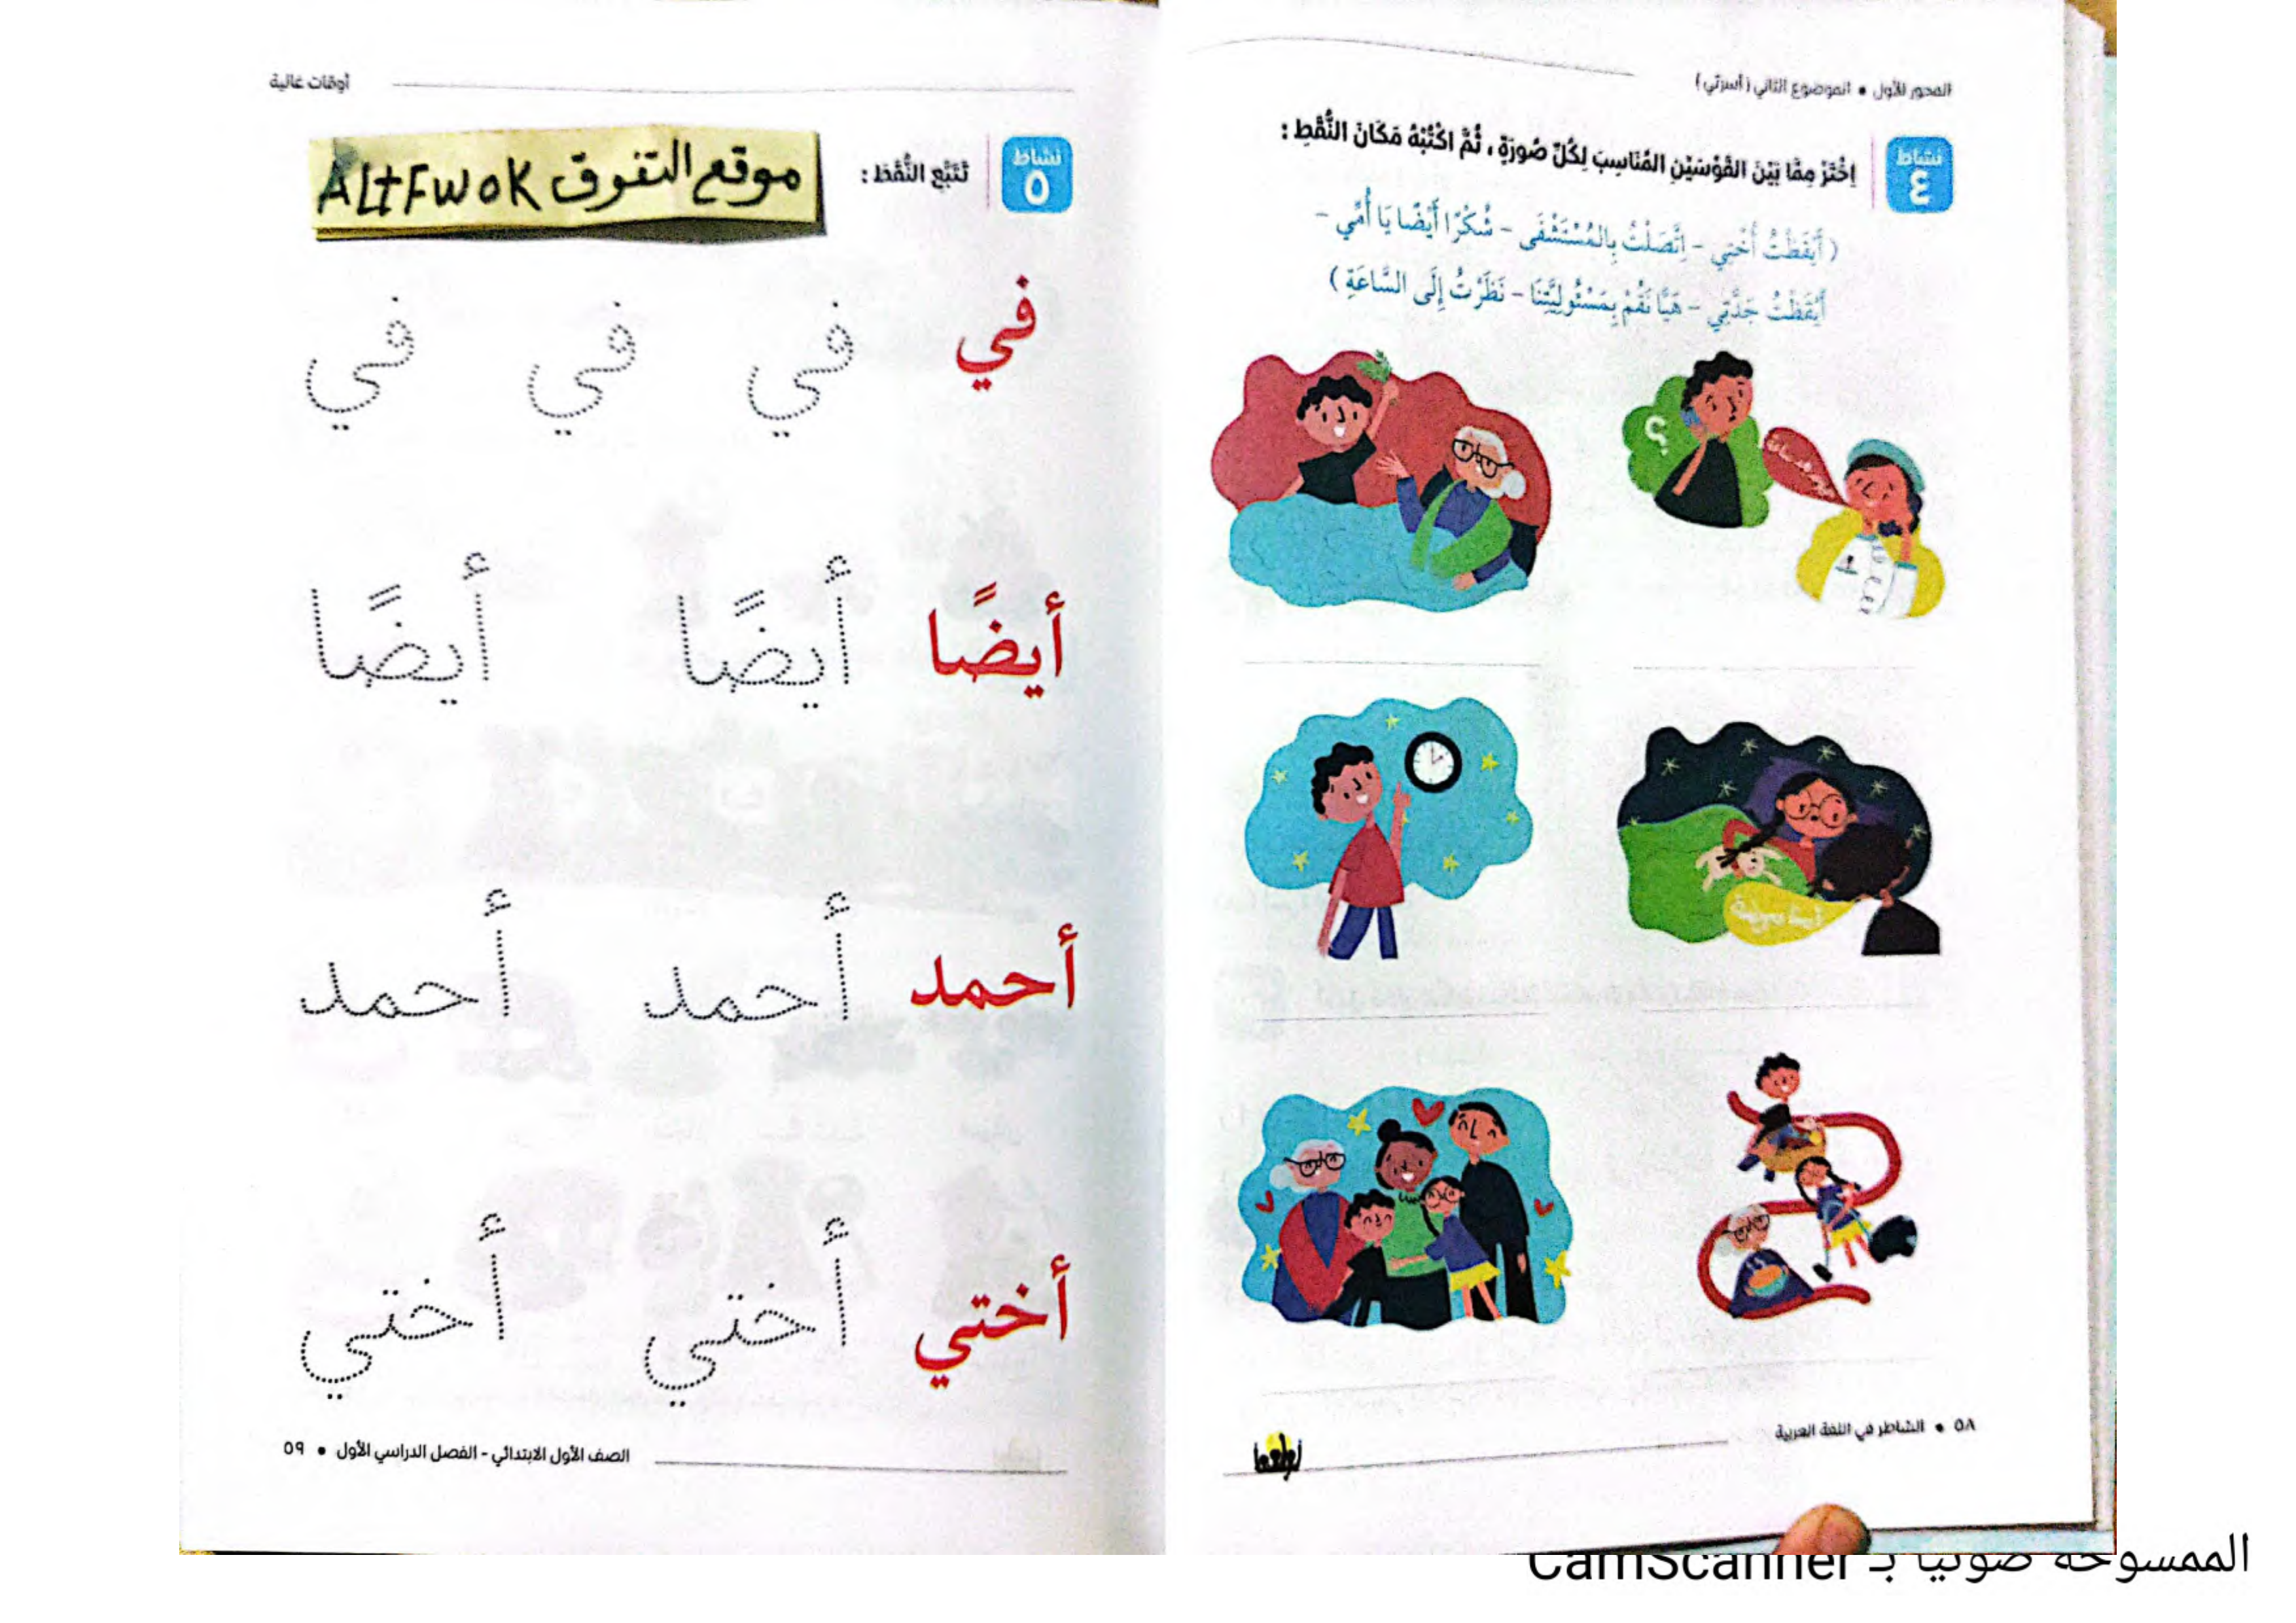 المحور الأول • الموضوع الثاني (أسرتي)
نشاط ٤
اِخْتَرْ مِمَّا بَيْنَ القَوْسَيْنِ المُنَاسِبَ لِكُلِّ صُورَةٍ ، ثُمَّ اكْتُبْهُ مَكَانَ النُّقَطِ :
( أَيْقَظْتُ أُخْتِي - اِتَّصَلْتُ بِالمُسْتَشْفَى - شُكْرًا أَيْضًا يَا أُمِّي -
أَيْقَظْتُ جَدَّتِي - هَيَّا نَقُمْ بِمَسْئُولِيَّتِنَا - نَظَرْتُ إِلَى السَّاعَةِ )
؟
٥٨ • الشاطر في اللغة العربية
أوقات غالية
نشاط ٥
تَتَبَّعِ النُّقَطَ :
موقع التفوق ALtFwok
في في في في
أيضًا أيضًا أيضًا
أحمد أحمد أحمد
أختي أختي أختي
الصف الأول الابتدائي - الفصل الدراسي الأول • ٥٩
الممسوحة ضوئيا بـ CamScanner